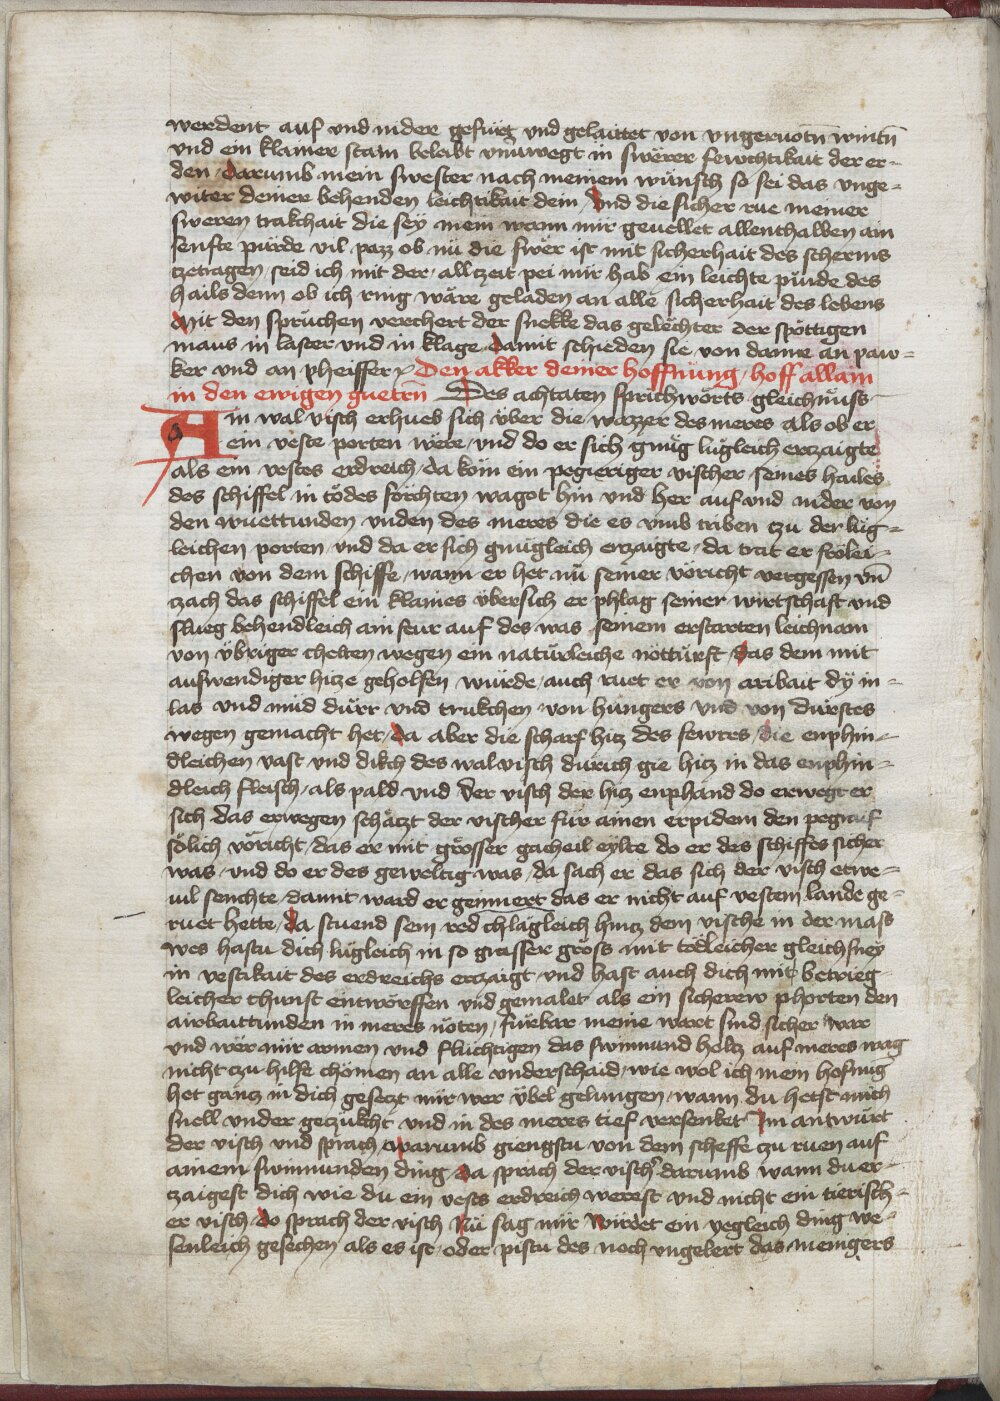 werdent auf vnd nider gefürt vnd gelaittet von vngeruotn wintn
vnd ein klainer stam beleibt vnuwegt in swërer fewchtikait der er-
den / darumb mein swester nach meinem wunsch so sei das vnge-
witer deiner behenden leichtikait dein / Vnd die sicher rue meiner
sweren trakchait die sey mein wann mir geuellet allenthalben ain
senfte pürde vil pazz ob nü die swër ist mit sicherhait des scherms
zetragen / seid ich mit der / allzeit pei mir hab ein leichte pürde des
hails denn ob ich ring wäre geladen an alle sicherhait des lebens
Mit den sprüchen verchert der snekke das gelëchter der spöttigen
maus in laster vnd in klage / damit schieden sie von danne an paw-
ker vnd an pheiffer / Den akker deiner hoffnung / hoff allain
in den ewigen guetrn Des achtaten sprichwörts gleichnüss
Ain wal visch erhueb sich vber die wazzer des meres als ob er
ein veste porten were / vnd do er sich gnüg lügleich erczaigte
als ein vestes erdreich / da kom ein pegieriger vischer seines hailes
des schiffel in tödes förchten wagot hin vnd her auf vnd nider von
den wuettunden vnden des meres die es vmb triben czu der lüg-
leichen porten vnd da er sich gnügleich erczaigte / da trat er frölei-
chen von dem schiffe / wann er het nü seiner vöricht vergessen vn
czach das schiffel ein klaines vbersich er phlag seiner wirtschaft vnd
slueg behendleich ain feur auf des was seinem erstarten leichnam
von vbriger chelten wegen ein natürleiche notturft / das dem mit
auswendiger hicze geholfen würde / auch ruet er von aribait dÿ in-
las vnd müd dürr vnd trukchen von hungers vnd von dürstes
wegen gemacht het / da aber die scharf hicz des fewres / die enphin-
dleichen vast vnd dikch des walvisch durich gie hicz in das enphin-
dleich fleisch / als pald vnd der visch der hicz enphand do erwegt er
sich das erwegen schäczt der vischer für ainen erpidem den pegraif
sölich vöricht / das er mit grösser gacheil eylte do er des schiffes sicher
was / vnd do er des geweltig was / da sach er das sich der visch etwe-
uil senchte / damit ward er gemnert das er nicht auf vestem lande ge-
ruet hette / Da stuend sein red chlägleich hincz dem vische in der mass
wes hastu dich lügleich in so grasser gröss mit tödleicher gleichsney
in vestikait des erdreichs erczaigt vnd hast auch dich mit betrieg-
leicher chunst entworffen vnd gemalet als ein sicherew phorten den
airbaittunden in meres nöten / fürbar meine wart sind sicher war
vnd wër mir armen vnd flüchtigen das swimund holtz auf meres wag
nicht czu hilft chömen an alle vnderschaid / wie wol ich mein hofnug
het gäncz in dich geseczt mir wer vbel gelungen / wann du hetst mich
snell vnder gezükcht vnd in des meres tief versenket Im antwurt
der visch vnd sprach / warumb giengstu von dem scheffe czu ruen auf
ainem swimmunden ding / da sprach der vischer darumb wann du er-
czaigest dich wie du ein vests erdreich werest vnd nicht ein tierisch-
er visch / do sprach der visch Nü sag mir wirdet ein yegleich ding we-
senleich gesechen als es ist / oder pistu des noch vngelert das menigers